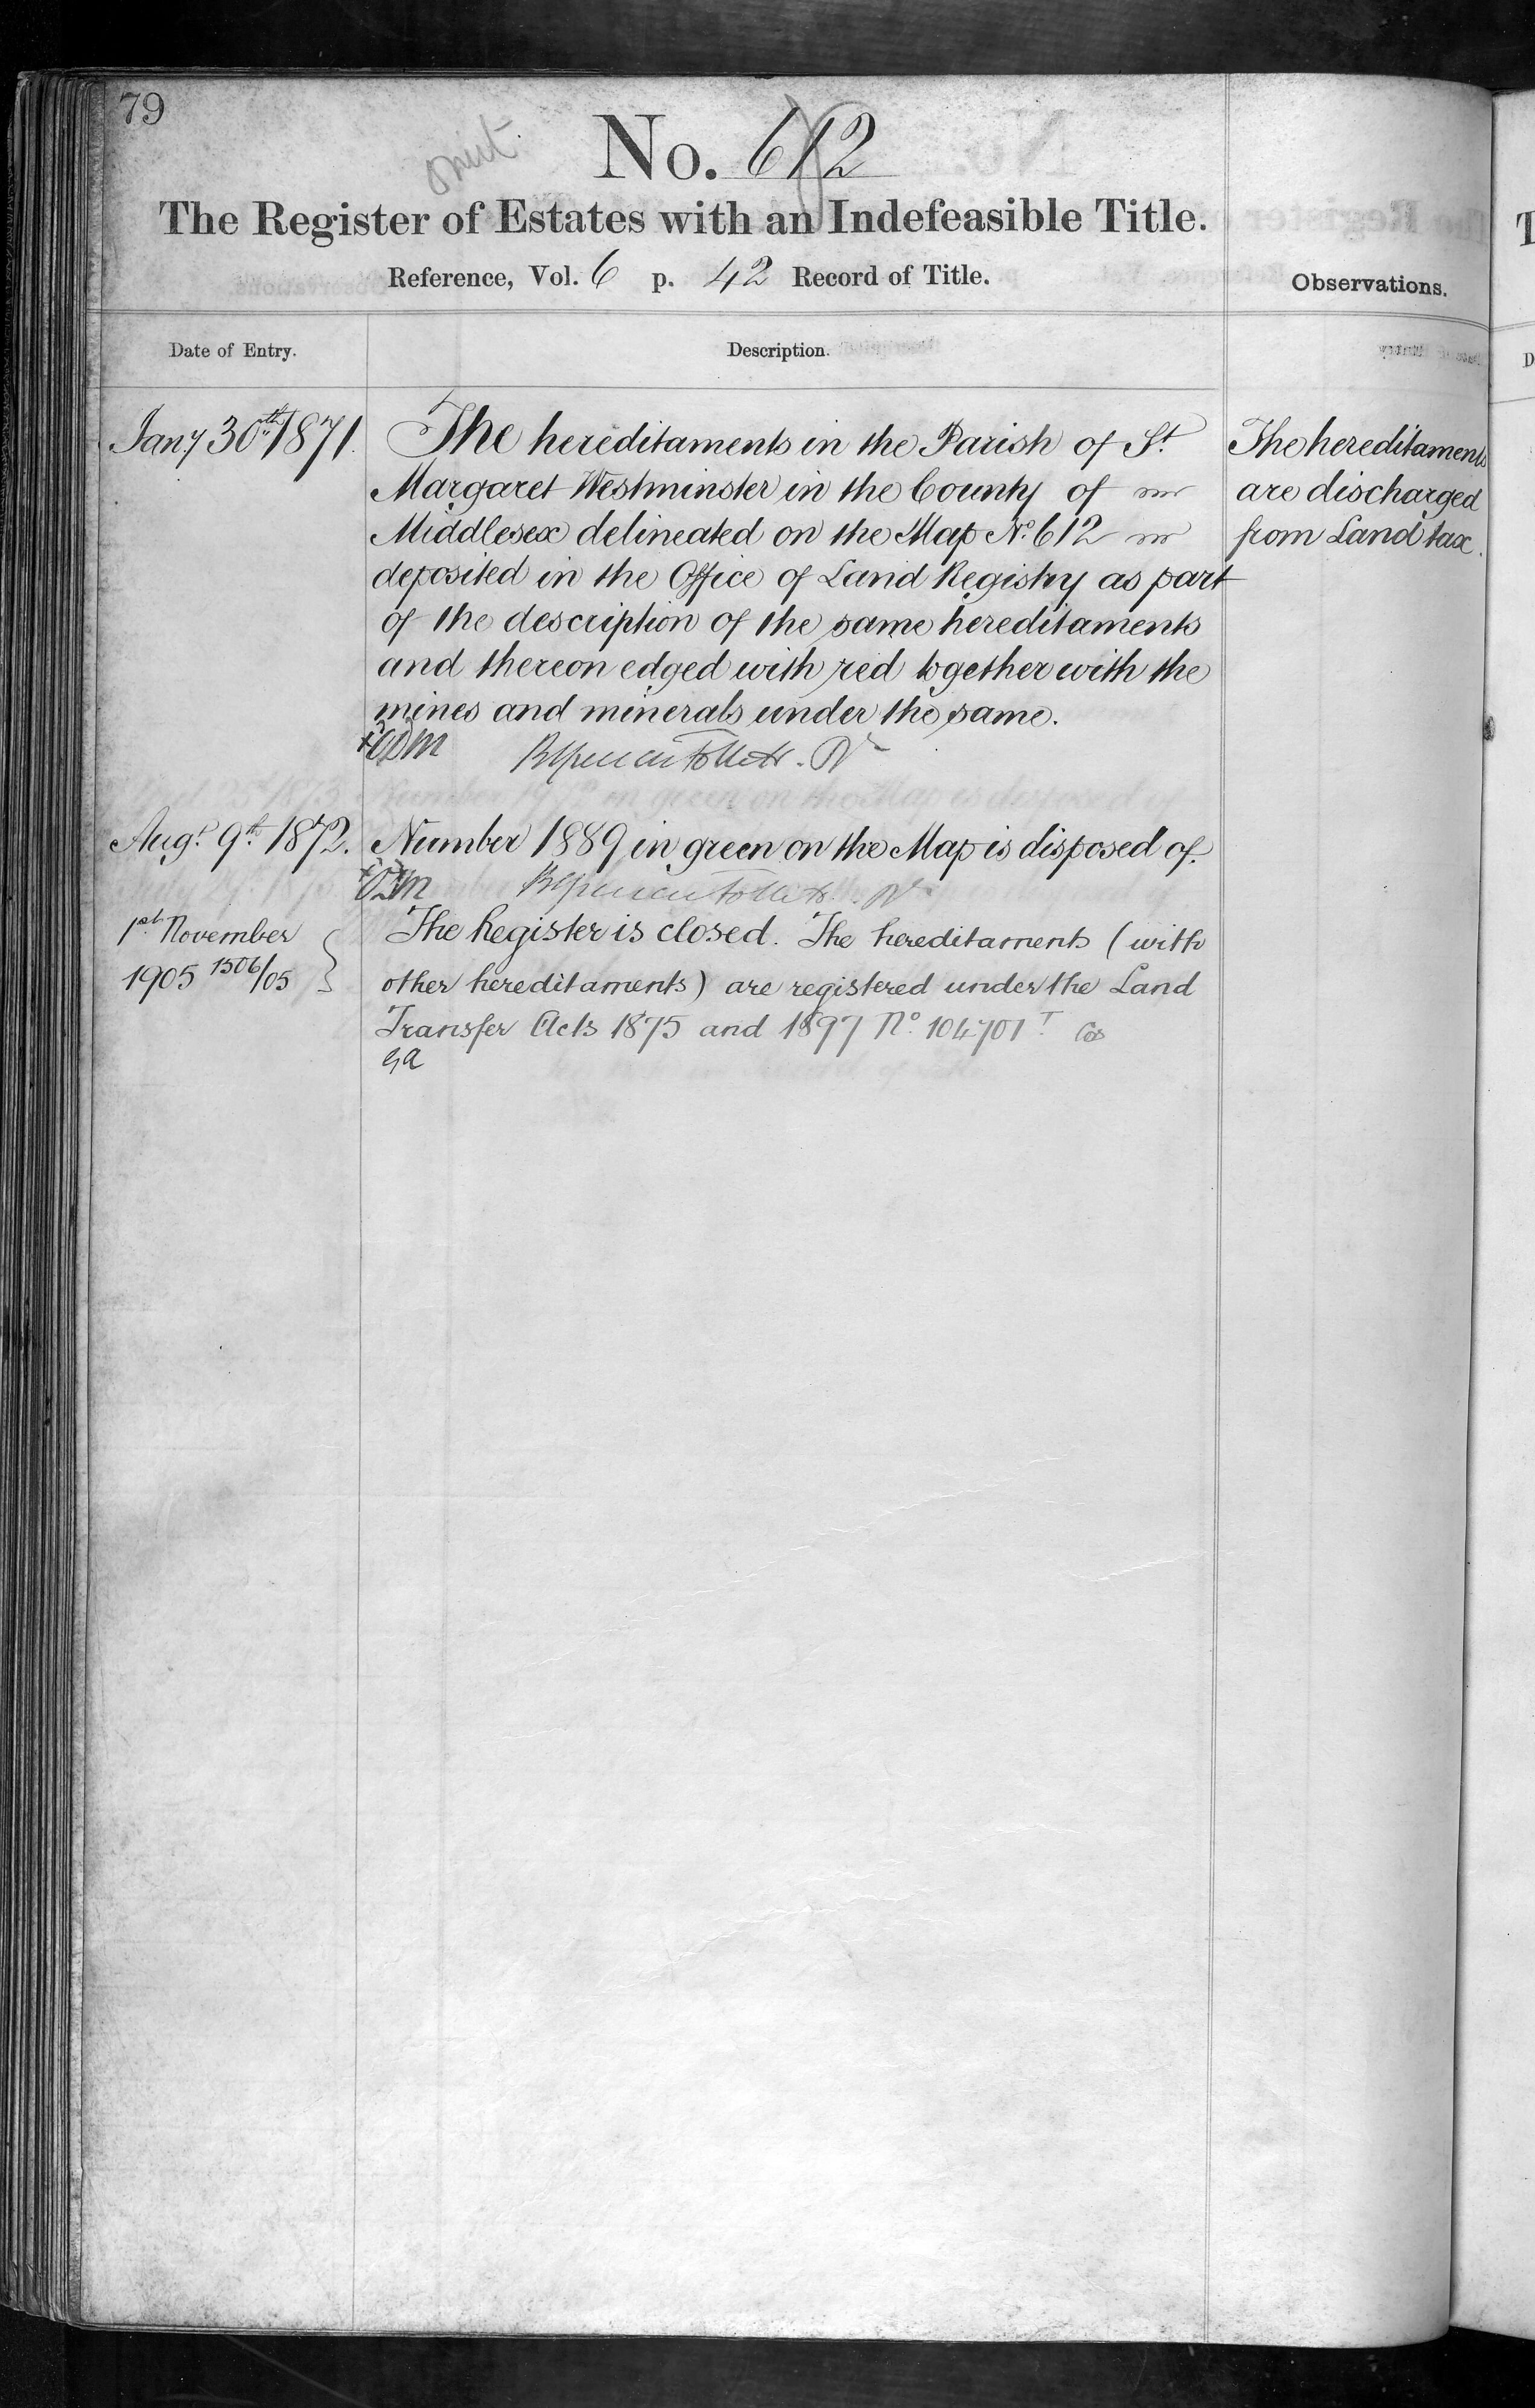 79
omit.
No. 612
The Register of Estates with an Indefeasible Title.
Reference, Vol. 6 p. 42 Record of Title.
Observations.
Date of Entry.
Description.
Jany 30th 1871.
The hereditaments in the Parish of St
Margaret Westminster in the County of
Middlesex delineated on the Map No. 612
deposited in the Office of Land Registry as part
of the description of the same hereditaments
and thereon edged with red together with the
mines and minerals under the same.
The hereditaments
are discharged
from Land tax.
Augt. 9th 1872.
Number 1889 in green on the Map is disposed of.
1st November
1905 1506/05
The Register is closed. The hereditaments (with
other hereditaments) are registered under the Land
Transfer Acts 1875 and 1897 No. 104701